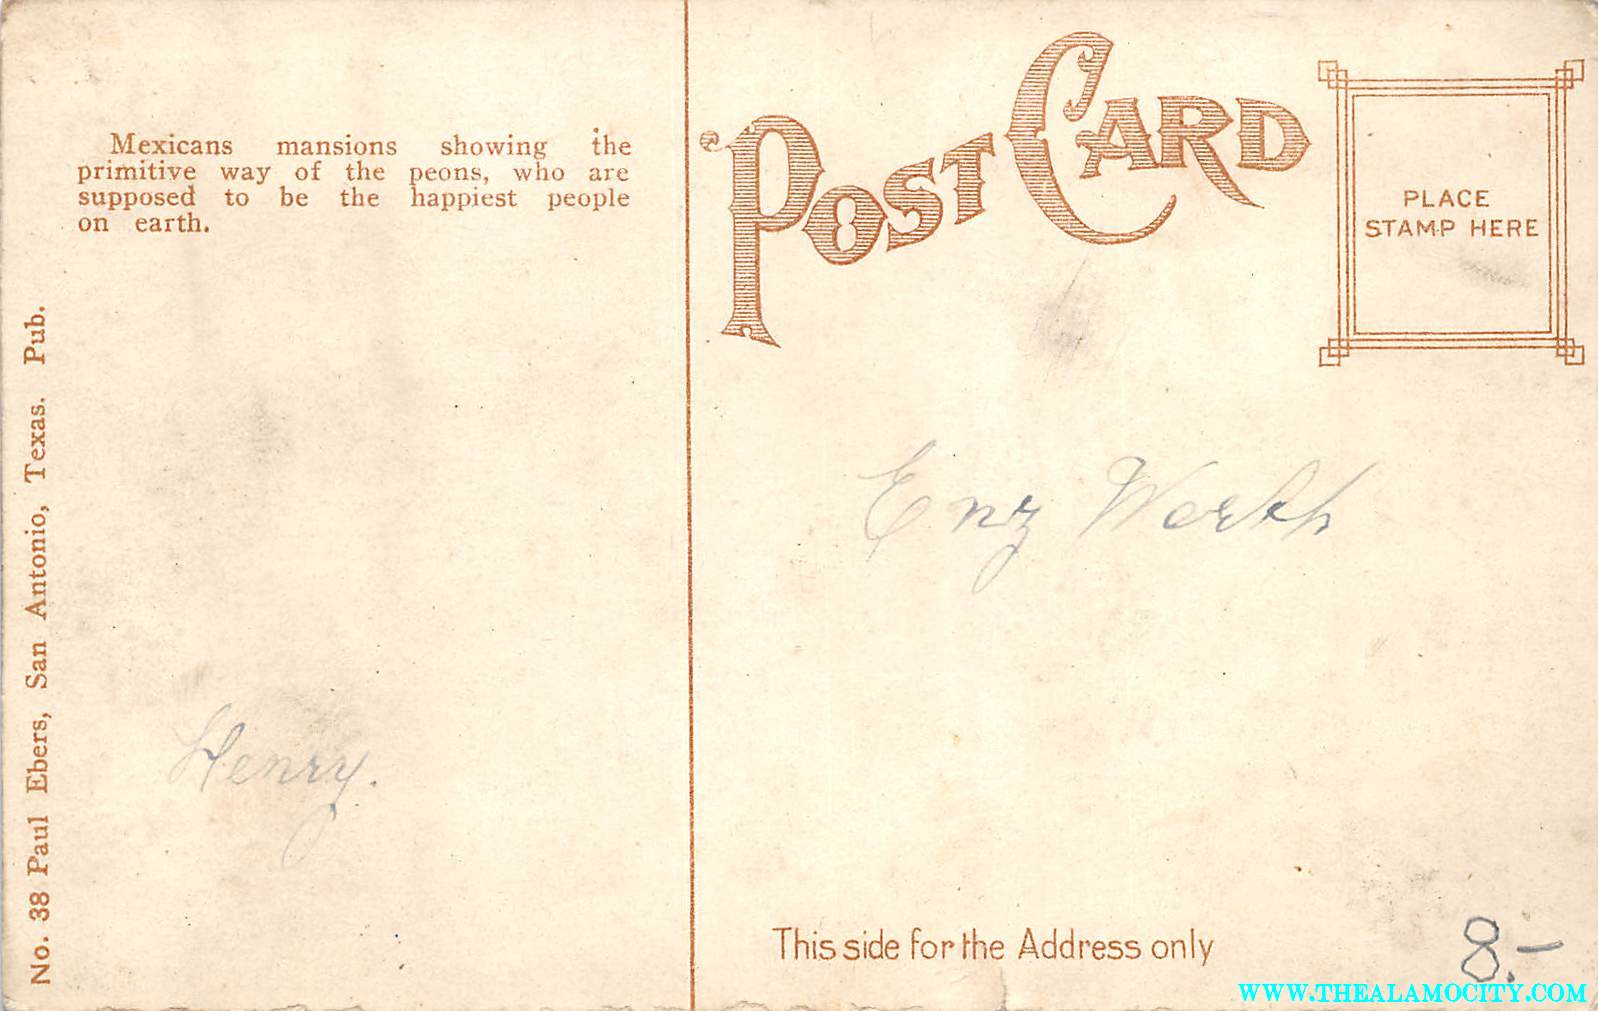 Mexicans mansions showing the
primitive way of the peons, who are
supposed to be the happiest people
on earth.
No. 38 Paul Ebers, San Antonio, Texas. Pub.
Henry.
POST CARD
PLACE
STAMP HERE
Enz Werth
This side for the Address only
8.-
WWW.THEALAMOCITY.COM